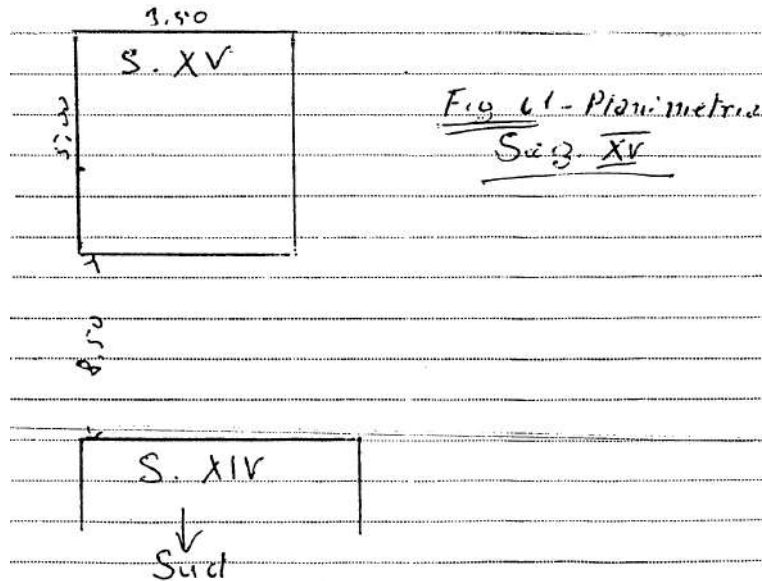 3.50
S. XV
Fig 61 - Planimetria
Sag. XV
8,50
S. XIV
Sud